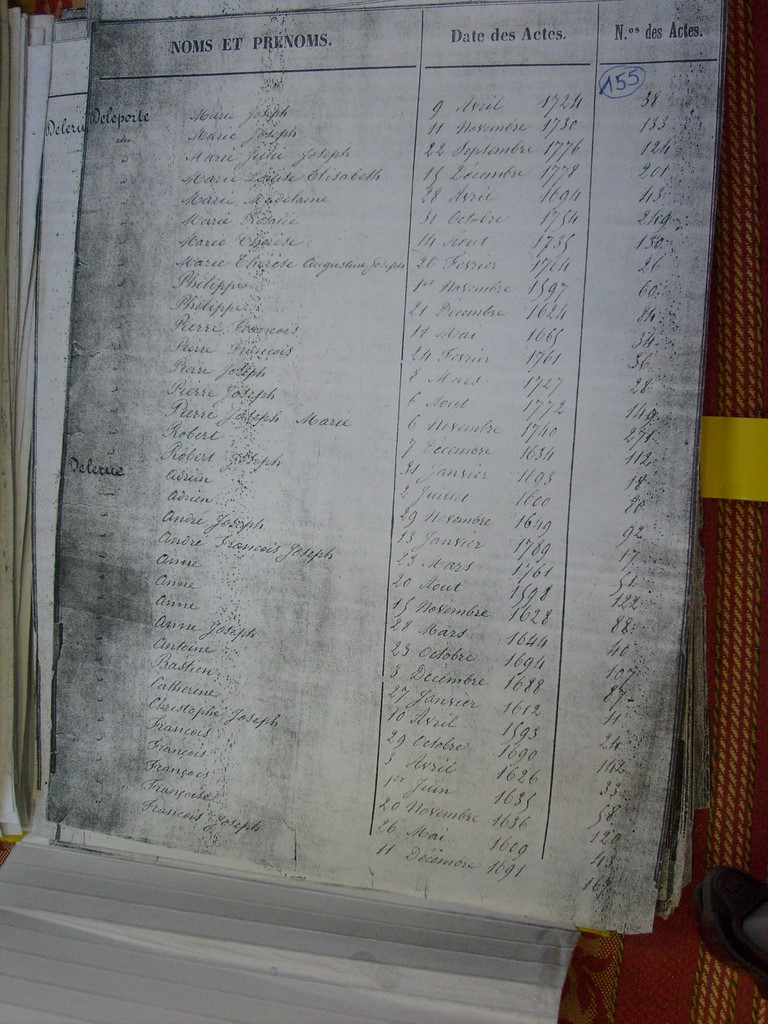 NOMS ET PRENOMS. Date des Actes. N.os des Actes.
155
Deleru
Deleporte Marie Joseph 9 Avril 1724 38
Marie Joseph 11 Novembre 1730 133
Marie Julie Joseph 22 Septembre 1776 124
Marie Louise Elisabeth 15 Decembre 1778 201
Marie Madelaine 28 Avril 1694 43
Marie Rosalie 31 Octobre 1754 249
Marie Thérèse 14 Aout 1735 130
Marie Thérèse Augustine Joseph 26 Février 1764 26
Philippe 1er Novembre 1597 60
Philippe 21 Décembre 1624 84
Pierre François 19 Mai 1665 34
Pierre François 24 Février 1761 36
Pierre Joseph 8 Mars 1727 28
Pierre Joseph 6 Aout 1772 149
Pierre Joseph Marie 6 Novembre 1740 271
Robert 7 Décembre 1634 112
Robert Joseph 31 Janvier 1693 18
Delerue Adrien 2 Juillet 1600 20
Adrien 29 Novembre 1649 92
André Joseph 13 Janvier 1789 17
André François Joseph 23 Mars 1761 51
Anne 20 Aout 1598 122
Anne 15 Novembre 1628 88
Anne 28 Mars 1644 40
Anne Joseph 23 Octobre 1694 107
Antoine 8 Décembre 1688 87
Bastien 27 Janvier 1612 11
Catherine 10 Avril 1593 24
Christophe Joseph 29 Octobre 1690 142
François 3 Avril 1626 33
François 1er Juin 1635 58
François 20 Novembre 1636 120
Françoise 26 Mai 1609 43
François Joseph 11 Décembre 1691 167